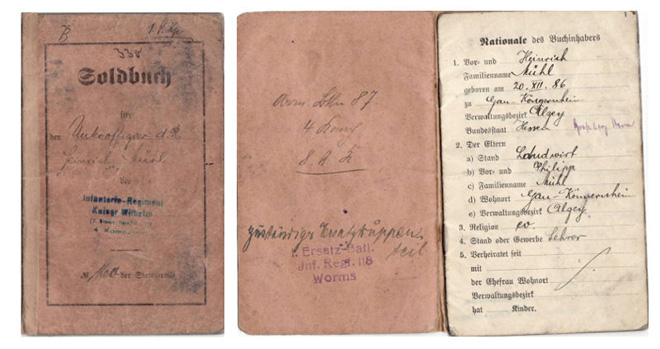 338
Soldbuch
für
den Unteroffizier d.R.
Heinrich Mühl
der
Infanterie-Regiment
Kaiser Wilhelm
No der Stammrolle
87
4
zuständiger Ersatztruppen
teil
I. Ersatz-Batl.
Inf. Regt. 118
Worms
Nationale des Buchinhabers
1. Vor- und Heinrich
Familienname Mühl
geboren am 20. XII. 86
zu Gau-Köngernheim
Verwaltungsbezirk Alzey
Bundesstaat Hessen
2. Der Eltern
a) Stand Landwirt
b) Vor- und Philipp
c) Familienname Mühl
d) Wohnort Gau-Köngernheim
e) Verwaltungsbezirk Alzey
3. Religion ev.
4. Stand oder Gewerbe Lehrer
5. Verheiratet seit
mit
der Ehefrau Wohnort
Verwaltungsbezirk
hat Kinder.